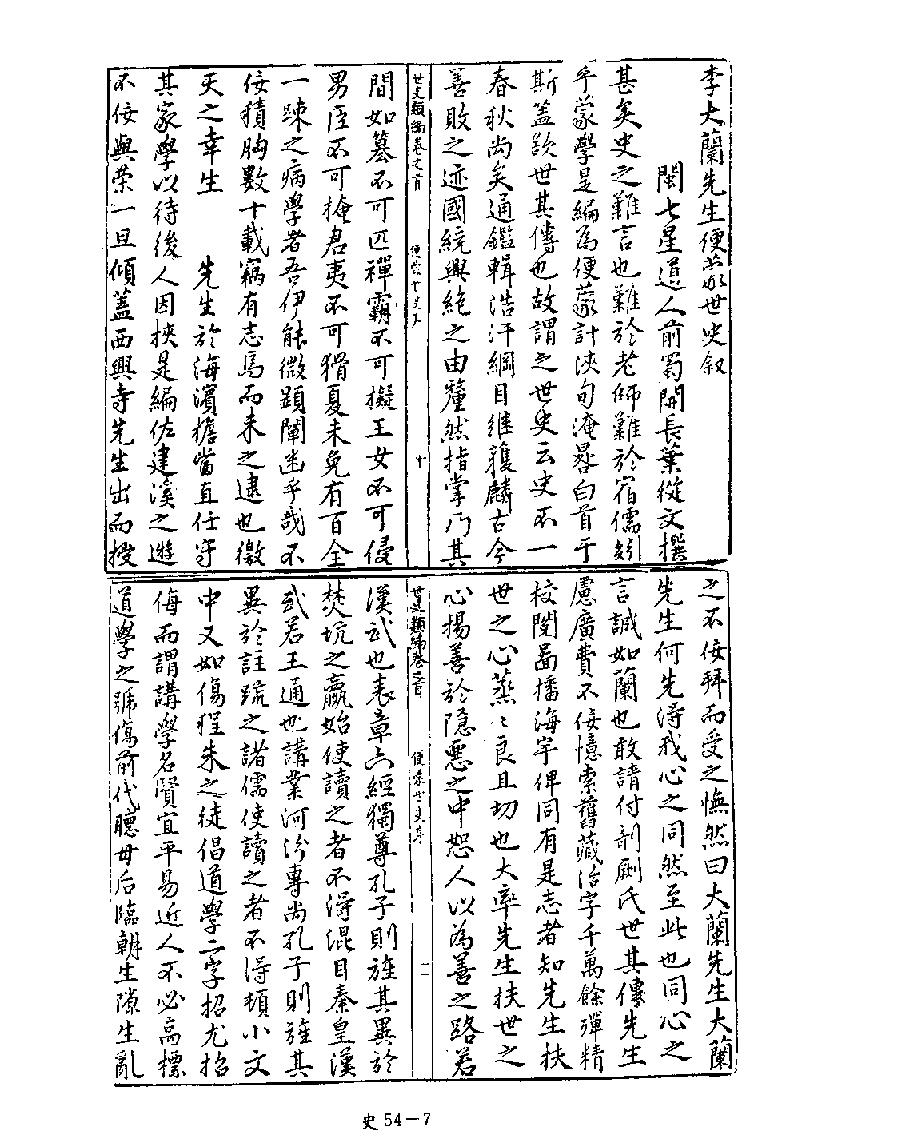 李大蘭先生便蒙世史叙
閩七星道人前蜀開長葉從文撰
甚矣史之難言也難於老師難於宿儒矧
乎蒙學是編為便蒙計浹旬淹晷白首于
斯蓋欲世其傳也故謂之世史云史不一
春秋尚矣通鑑輯浩汗綱目继獲麟古今
善敗之迹國統興絶之由釐然指掌门其
世史類編卷之首
十
間如墓不可匹禪霸不可擬王女不可侵
男臣不可掩君夷不可猾夏未免有百全
一踈之病學者吾伊能微顕闡幽乎哉不
佞積胸數十載竊有志焉而未之逮也徼
天之幸生 先生於海濱擔當直任守
其家學以待後人因挾是編佐建溪之遊
不佞與荣一旦傾蓋西興寺先生出而授
之不佞拜而受之憮然曰大蘭先生大蘭
先生何先淂我心之同然至此也同心之
言誠如蘭也敢請付剞劂氏世其傳先生
慮廣費不佞憶索舊藏活字千萬餘殫精
校閱昜播海宇俾同有是志者知先生扶
世之心蒸〻良且切也大率先生扶世之
心揚善於隐惡之中恕人以為善之路若
世史類編卷之首
便蒙世史序
二
漢武也表章六經獨尊孔子則旌其異於
焚坑之嬴始使讀之者不淂混目秦皇漢
武若王通也講業河汾專尚孔子則旌其
異於註䟽之諸儒使讀之者不淂頪小文
中又如傷程朱之徒倡道學二字招尤招
侮而謂講學名賢宜平易近人不必高標
道學之號傷前代聽母后臨朝生隙生亂
史 54－7